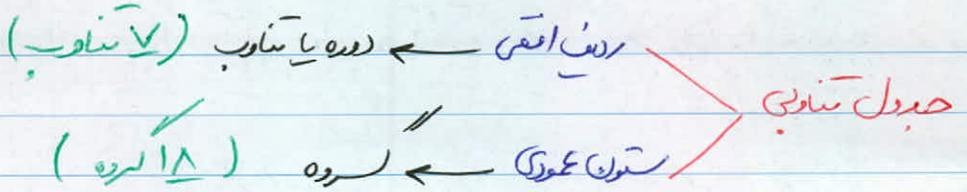 جدول تناوبی
ردیف افقی ← دوره یا تناوب (۷ تناوب)
ستون عمودی ← گروه (۱۸ گروه)